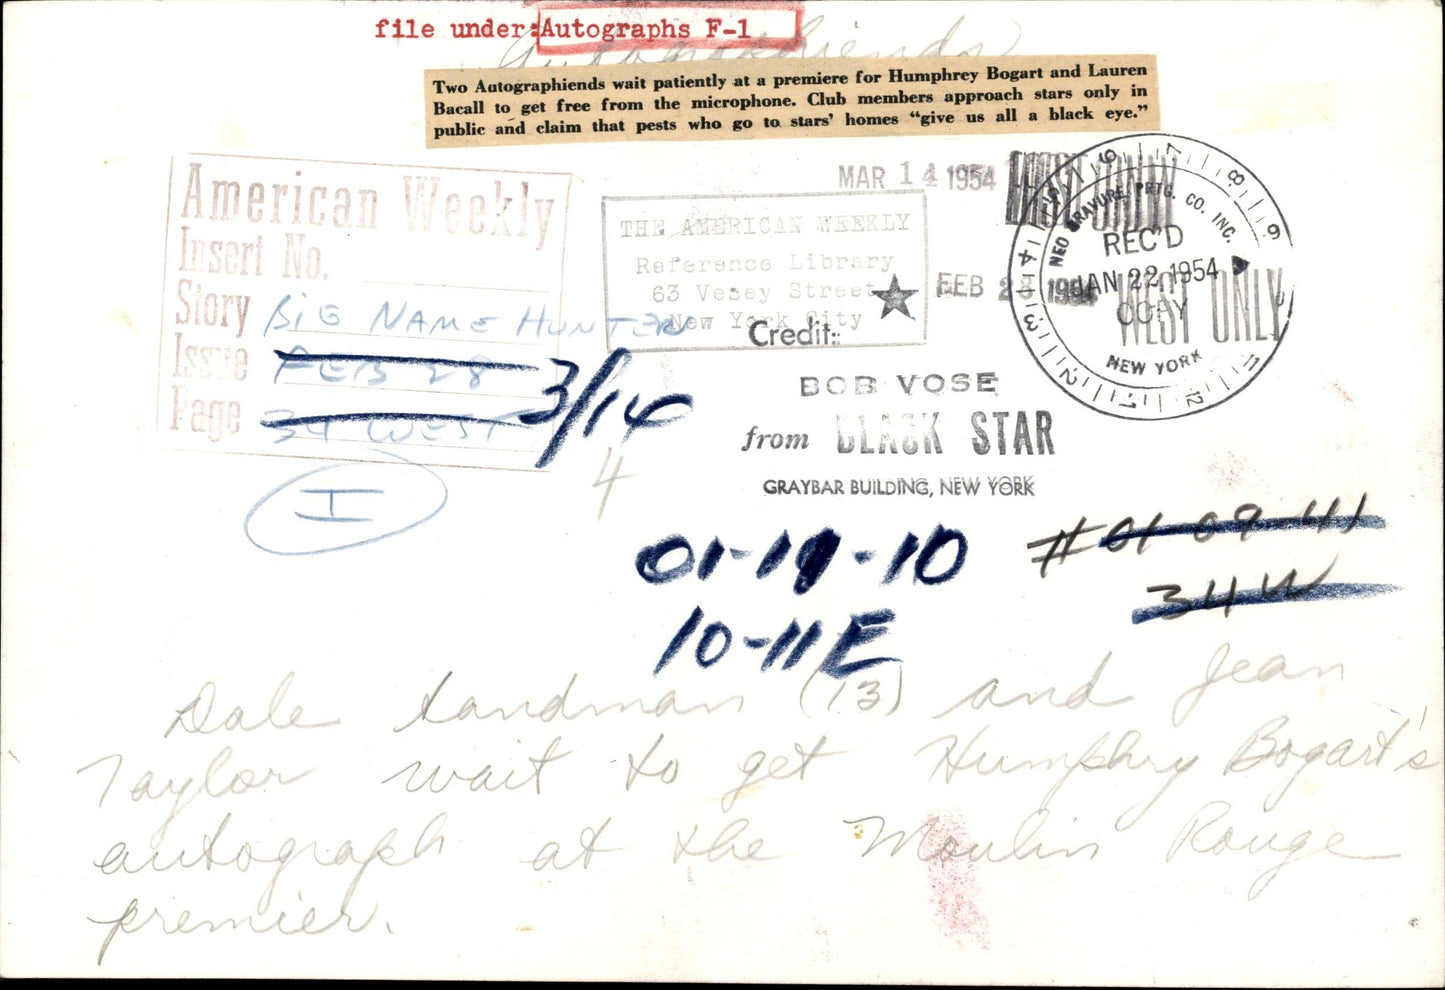 file under: Autographs F-1
Autographfiends
Two Autographiends wait patiently at a premiere for Humphrey Bogart and Lauren
Bacall to get free from the microphone. Club members approach stars only in
public and claim that pests who go to stars' homes "give us all a black eye."
American Weekly
Insert No.
Story BIG NAME HUNTERS
Issue FEB 28 3/14
Page 34 WEST
I
4
MAR 14 1954
WEST ONLY
THE AMERICAN WEEKLY
Reference Library
63 Vesey Street
New York City
FEB 28 1954
WEST ONLY
NEO GRAVURE PRTG. CO. INC.
REC'D
JAN 22 1954
COPY
NEW YORK
6 7 8 9 11 12 1 2 3 4 5
Credit:
BOB VOSE
from BLACK STAR
GRAYBAR BUILDING, NEW YORK
01-19-10
10-11E
#01 09 41
34W
Dale Sandman (13) and Jean
Taylor wait to get Humphry Bogart's
autograph at the Moulin Rouge
premier.